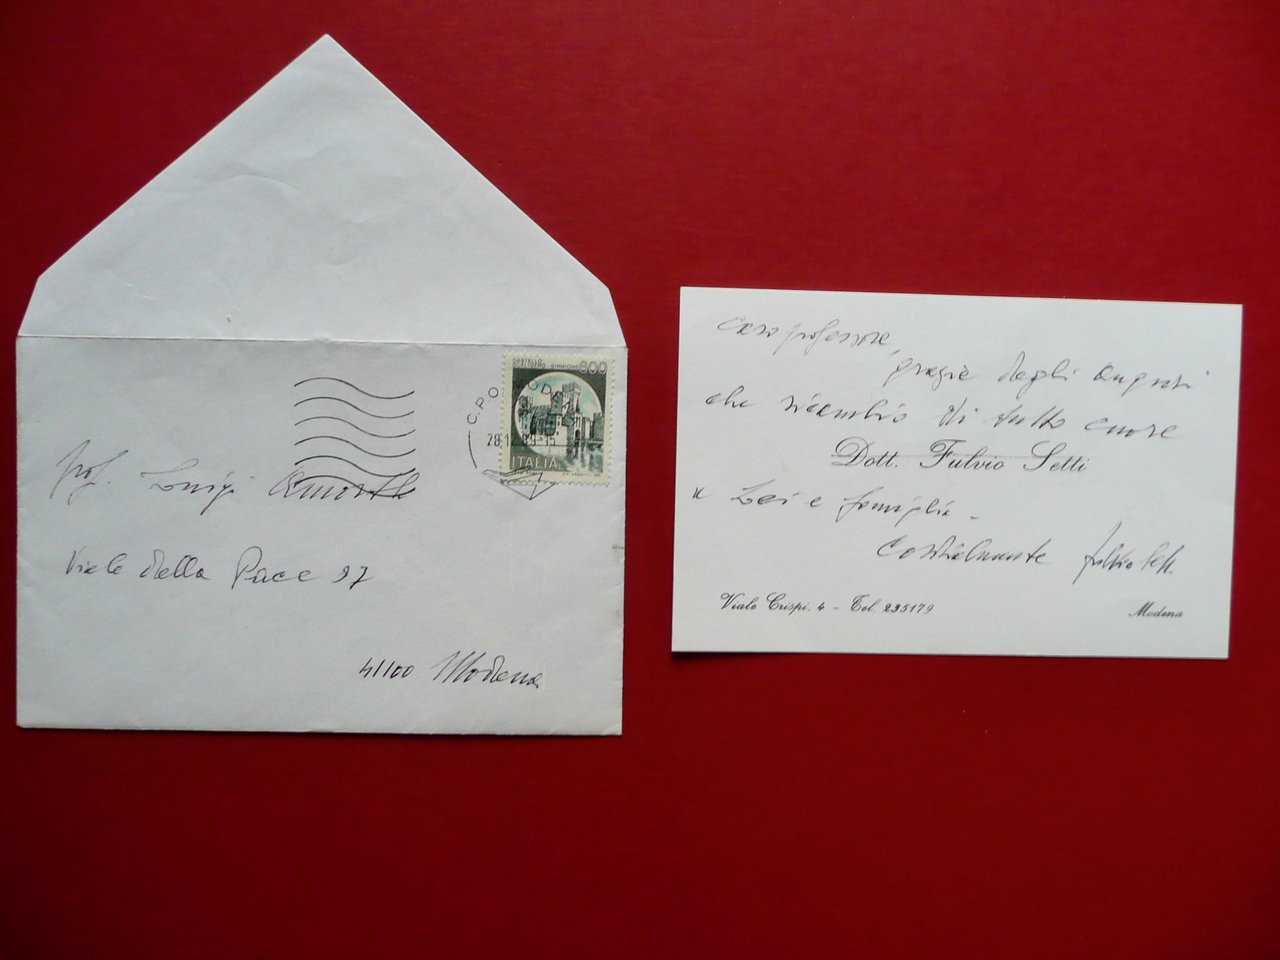 CASTELLO
SCALIGERO - SIRMIONE 600
C.P.O. MODENA
28.12.89-15
ITALIA
Prof. Luigi Amorth
Viale della Pace 97
41100 Modena
Caro professore,
grazie degli auguri
che ricambio di tutto cuore
Dott. Fulvio Setti
a Lei e famiglia -
Cordialmente Fulvio Setti
Viale Crispi, 4 - Tel. 235179
Modena